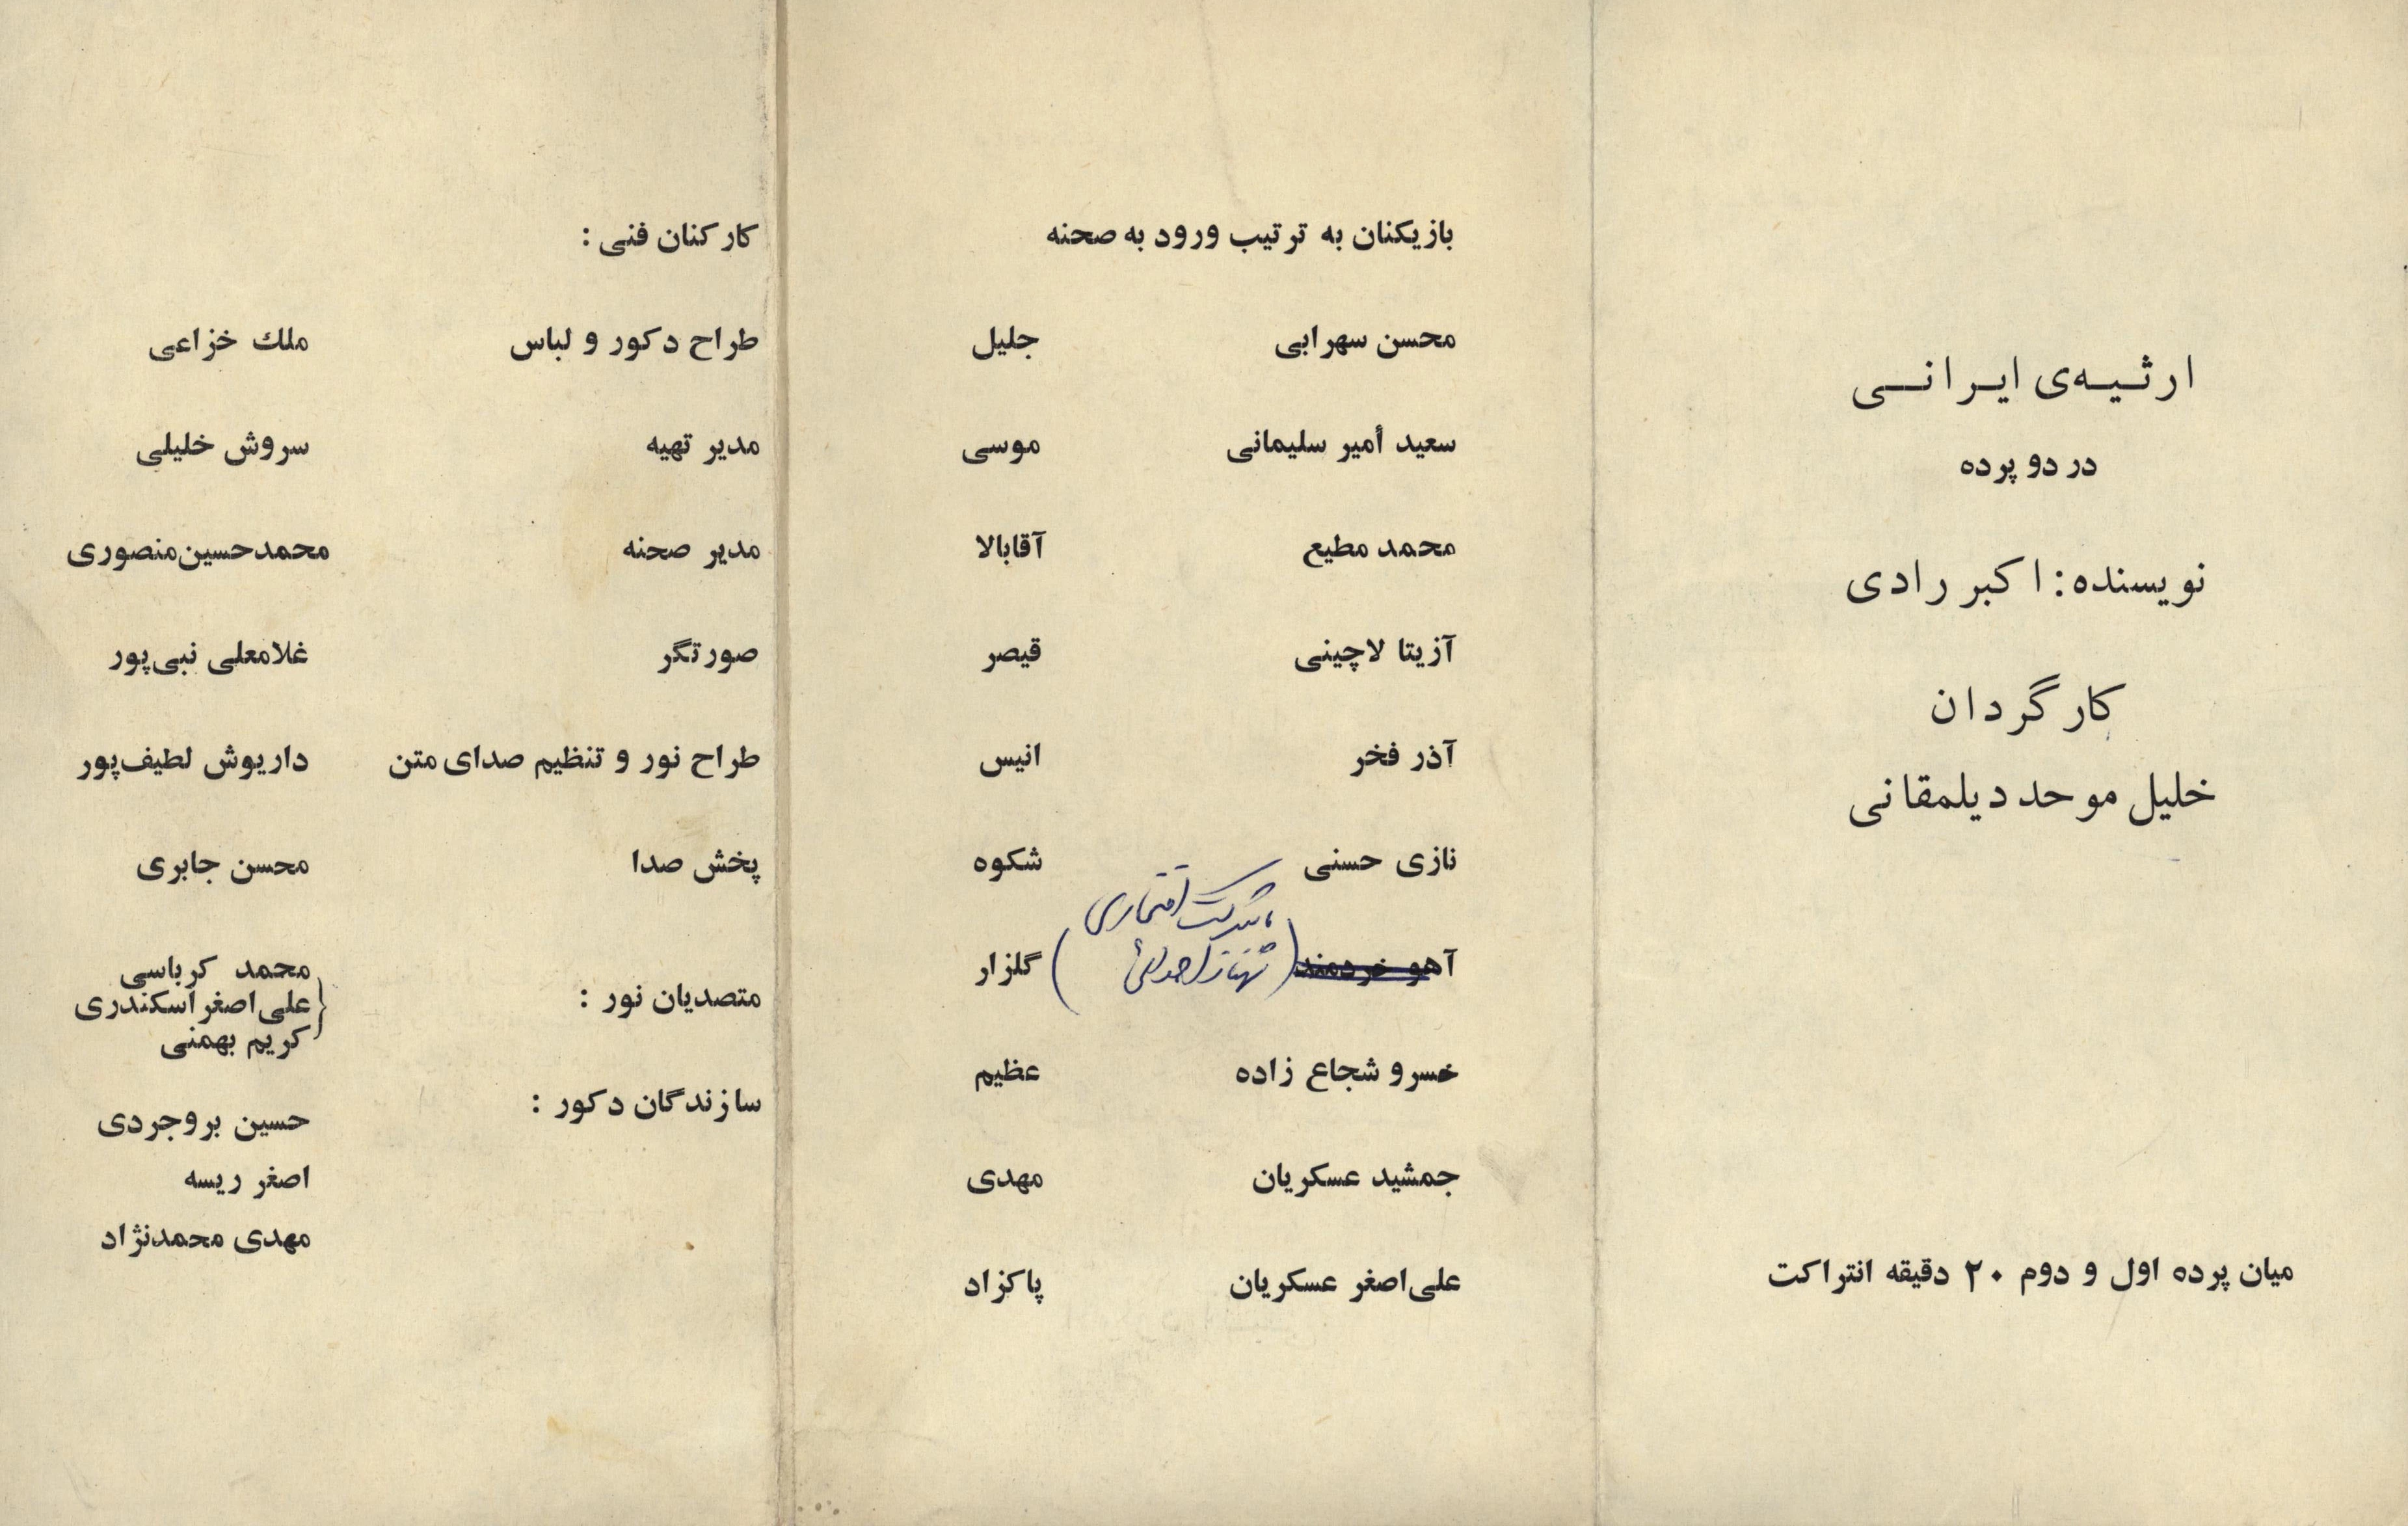 ارثیه‌ی ایرانی
در دو پرده
نویسنده: اکبر رادی
کارگردان
خلیل موحد دیلمقانی
میان پرده اول و دوم ۲۰ دقیقه انتراکت
بازیکنان به ترتیب ورود به صحنه
محسن سهرابی جلیل
سعید أمیر سلیمانی موسی
محمد مطیع آقابالا
آزیتا لاچینی قیصر
آذر فخر انیس
نازی حسنی شکوه
باشرکت افتخاری
آهو خردمند (شهناز) گلزار
خسرو شجاع زاده عظیم
جمشید عسکریان مهدی
علی‌اصغر عسکریان پاکزاد
کارکنان فنی :
طراح دکور و لباس ملک خزاعی
مدیر تهیه سروش خلیلی
مدیر صحنه محمدحسین‌منصوری
صورتگر غلامعلی نبی‌پور
طراح نور و تنظیم صدای متن داریوش لطیف‌پور
پخش صدا محسن جابری
متصدیان نور : محمد کرباسی
علی‌اصغر اسکندری
کریم بهمنی
سازندگان دکور : حسین بروجردی
اصغر ریسه
مهدی محمدنژاد